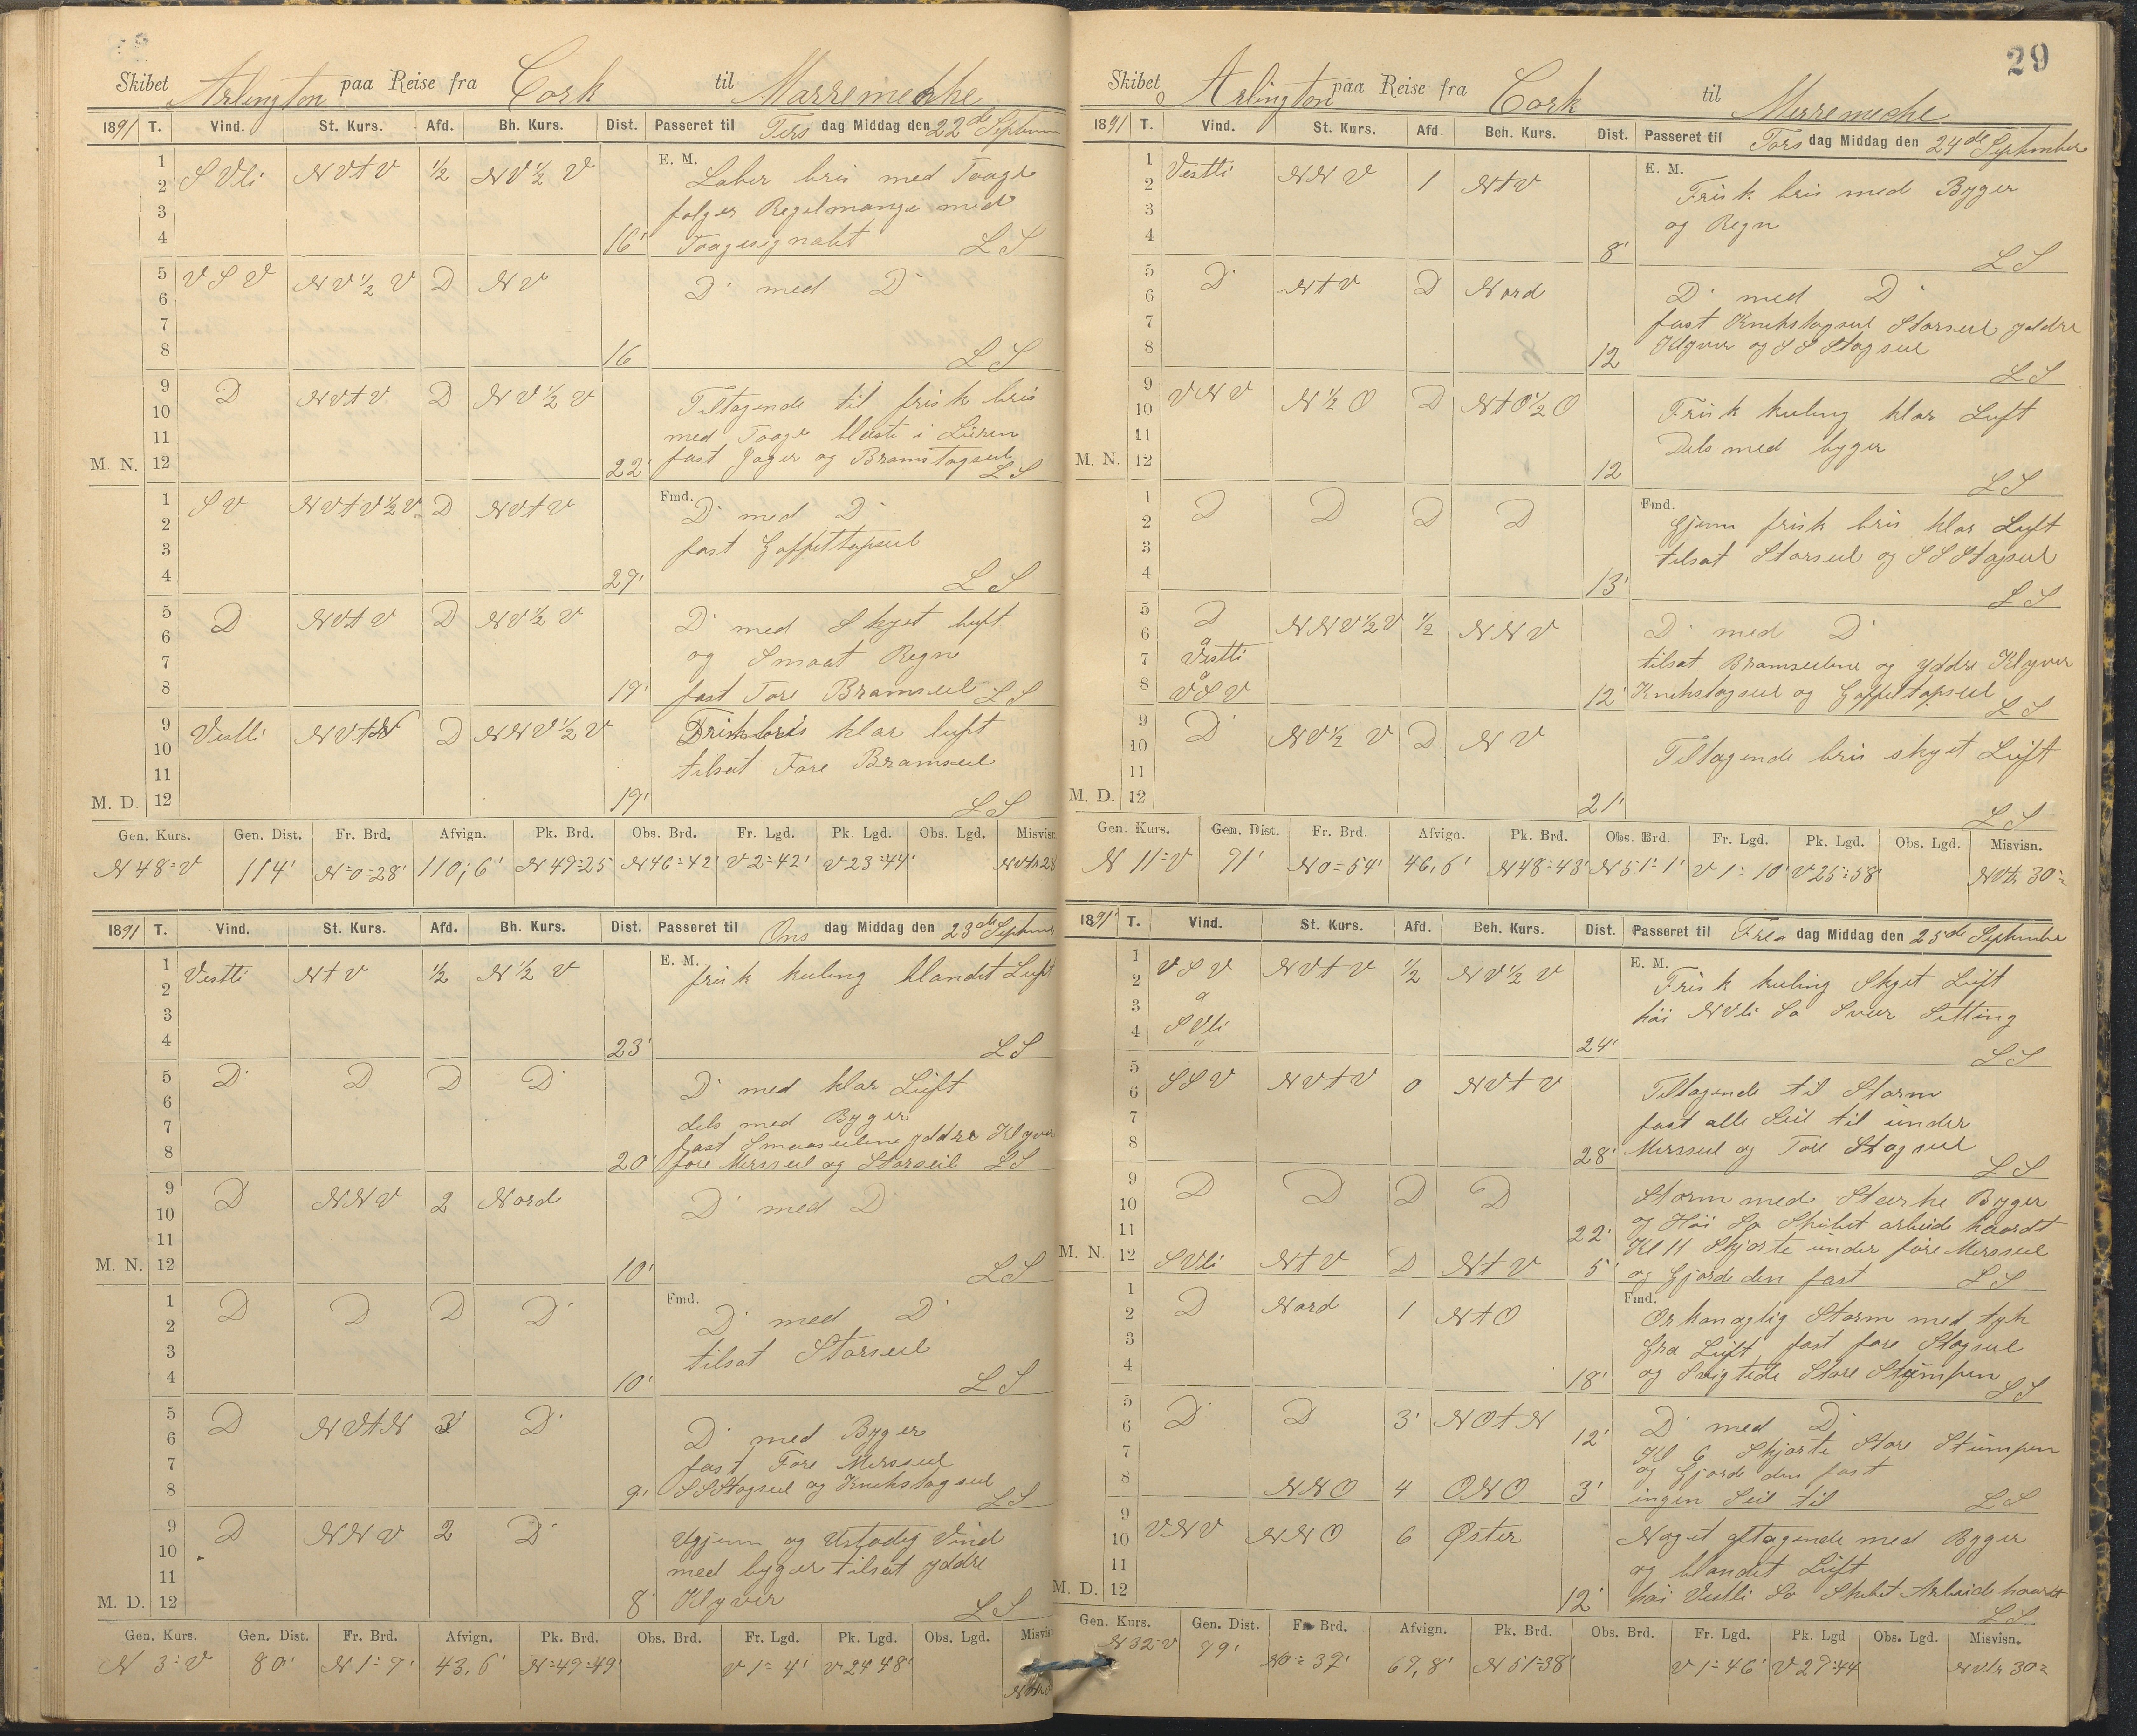 Skibet Arlington paa Reise fra Cork til Marremeche
1891 T. Vind. St. Kurs. Afd. Bh. Kurs. Dist. Passeret til Tirs dag Middag den 22de Septem
1 2 3 4 S Vli NVtV 1/2 NV 1/2 V 16' E. M. Laber bris med Taage
følger Regelmange med
Taagesignalet L S
5 6 7 8 V S V NV 1/2 V D NV 16 D med D
L S
9 10 11 M. N. 12 D NVtV D NV 1/2 V 22' Tiltagende til frisk bris
med Taage blæste i Luren
fast Jager og Bramstagseil
L S
1 2 3 4 S V NVtV 1/2 V D NVtV 27' Fmd. D med D
fast Gaffeltopseil
L S
5 6 7 8 D NVtV D NV 1/2 V 19' D med Skyet luft
og Smaat Regn
fast Fore Bramseil L S
9 10 11 M. D. 12 Vestli NVtN D NNV 1/2 V 19' Frisk bris klar luft
tilsat Fore Bramseil
L S
Gen. Kurs. Gen. Dist. Fr. Brd. Afvign. Pk. Brd. Obs. Brd. Fr. Lgd. Pk. Lgd. Obs. Lgd. Misvisn.
N 48° V 114' N=0=28' 110,6' N 49=25 N 46=42' V 2=42' V 23=44' NVtr 28
1891 T. Vind. St. Kurs. Afd. Bh. Kurs. Dist. Passeret til Ons dag Middag den 23de Septem
1 2 3 4 Vestli NtV 1/2 N 1/2 V 23' E. M. frisk kuling blandet Luft
L S
5 6 7 8 D D D D 20' D med klar Luft
dels med Byger
fast Smaaseilene yddre Klyver
fore Mersseil og Storseil L S
9 10 11 M. N. 12 D NNV 2 Nord 10' D med D
L S
1 2 3 4 D D D D 10' Fmd. D med D
tilsat Storseil
L S
5 6 7 8 D NVtN 3' D 9' D med Byger
fast Fore Mersseil
S S Stagseil og Knekstagseil
L S
9 10 11 M. D. 12 D NNV 2 D 8' Ugjevn og Ustadig Vind
med byger tilsat yddre
Klyver L S
Gen. Kurs. Gen. Dist. Fr. Brd. Afvign. Pk. Brd. Obs. Brd. Fr. Lgd. Pk. Lgd. Obs. Lgd. Misvisn
N 3° V 80' N 1=7' 43,6' N=49=49' V 1=4' V 24 48'
29
Skibet Arlington paa Reise fra Cork til Merremeche
1891 T. Vind. St. Kurs. Afd. Beh. Kurs. Dist. Passeret til Tors dag Middag den 24de September
1 2 3 4 Vestli NNV 1 NtV 8' E. M. Frisk bris med Byger
og Regn
L S
5 6 7 8 D NtV D Nord 12 D med D
fast Knekstagseil Storseil yddre
Klyver og S S Stagseil
L S
9 10 11 M. N. 12 VNV N 1/2 O D NtO 1/2 O 12 Frisk kuling klar Luft
Dels med byger
L S
1 2 3 4 D D D D 13' Fmd. Gjevn frisk bris klar Luft
tilsat Storseil og S S Stagseil
L S
5 6 7 8 D a Vestli a V S V NNV 1/2 V 1/2 NNV 12' D med D
tilsat Bramseilene og yddre Klyver
Knekstagseil og Gaffeltopseil
L S
9 10 11 M. D. 12 D NV 1/2 V D NV 21' Tiltagende bris skyet Luft
L S
Gen. Kurs. Gen. Dist. Fr. Brd. Afvign. Pk. Brd. Obs. Brd. Fr. Lgd. Pk. Lgd. Obs. Lgd. Misvisn.
N 11° V 91' N 0=54' 46,6' N 48=43' N 51=1' V 1=10' V 25=58' NVtr 30°
1891 T. Vind. St. Kurs. Afd. Beh. Kurs. Dist. Passeret til Fre dag Middag den 25de September
1 2 3 4 V S V a S Vli NVtV 1/2 NV 1/2 V 24' E. M. Frisk kuling Skyet Luft
høi NVli Sø Svær Setting
L S
5 6 7 8 S S V NVtV 0 NVtV 28' Tiltagende til Storm
fast alle Seil til under
Mersseil og Fore Stagseil
L S
9 10 11 D D D D 22' Storm med Stærke Byger
og Høi Sø Skibet arbeide haardt
Kl 11 Skjørte under fore Mersseil
M. N. 12 S Vli NtV D NtV 5' og Gjorde den fast L S
1 2 3 4 D Nord 1 NtO 18' Fmd. Orkanaglig Storm med tyk
Gra Luft fast fore Stagseil
og Svigtede Store Stumpen
L S
5 6 7 D D 3' NOtN 12' D med D
Kl 6 Skjørte Store Stumpen
og Gjorde den fast
8 NNO 4 ONO 3' ingen Seil til L S
9 10 11 M. D. 12 VNV NNO 6 Øster 12' Noget aftagende med Byger
og blandet Luft
høi Vestli Sø Skibet Arbeide haardt
L S
Gen. Kurs. Gen. Dist. Fr. Brd. Afvign. Pk. Brd. Obs. Brd. Fr. Lgd. Pk. Lgd Obs. Lgd. Misvisn.
N 32° V 79' N 0=37' 69,8' N 51=38' V 1=46' V 27=44 NVtr 30°